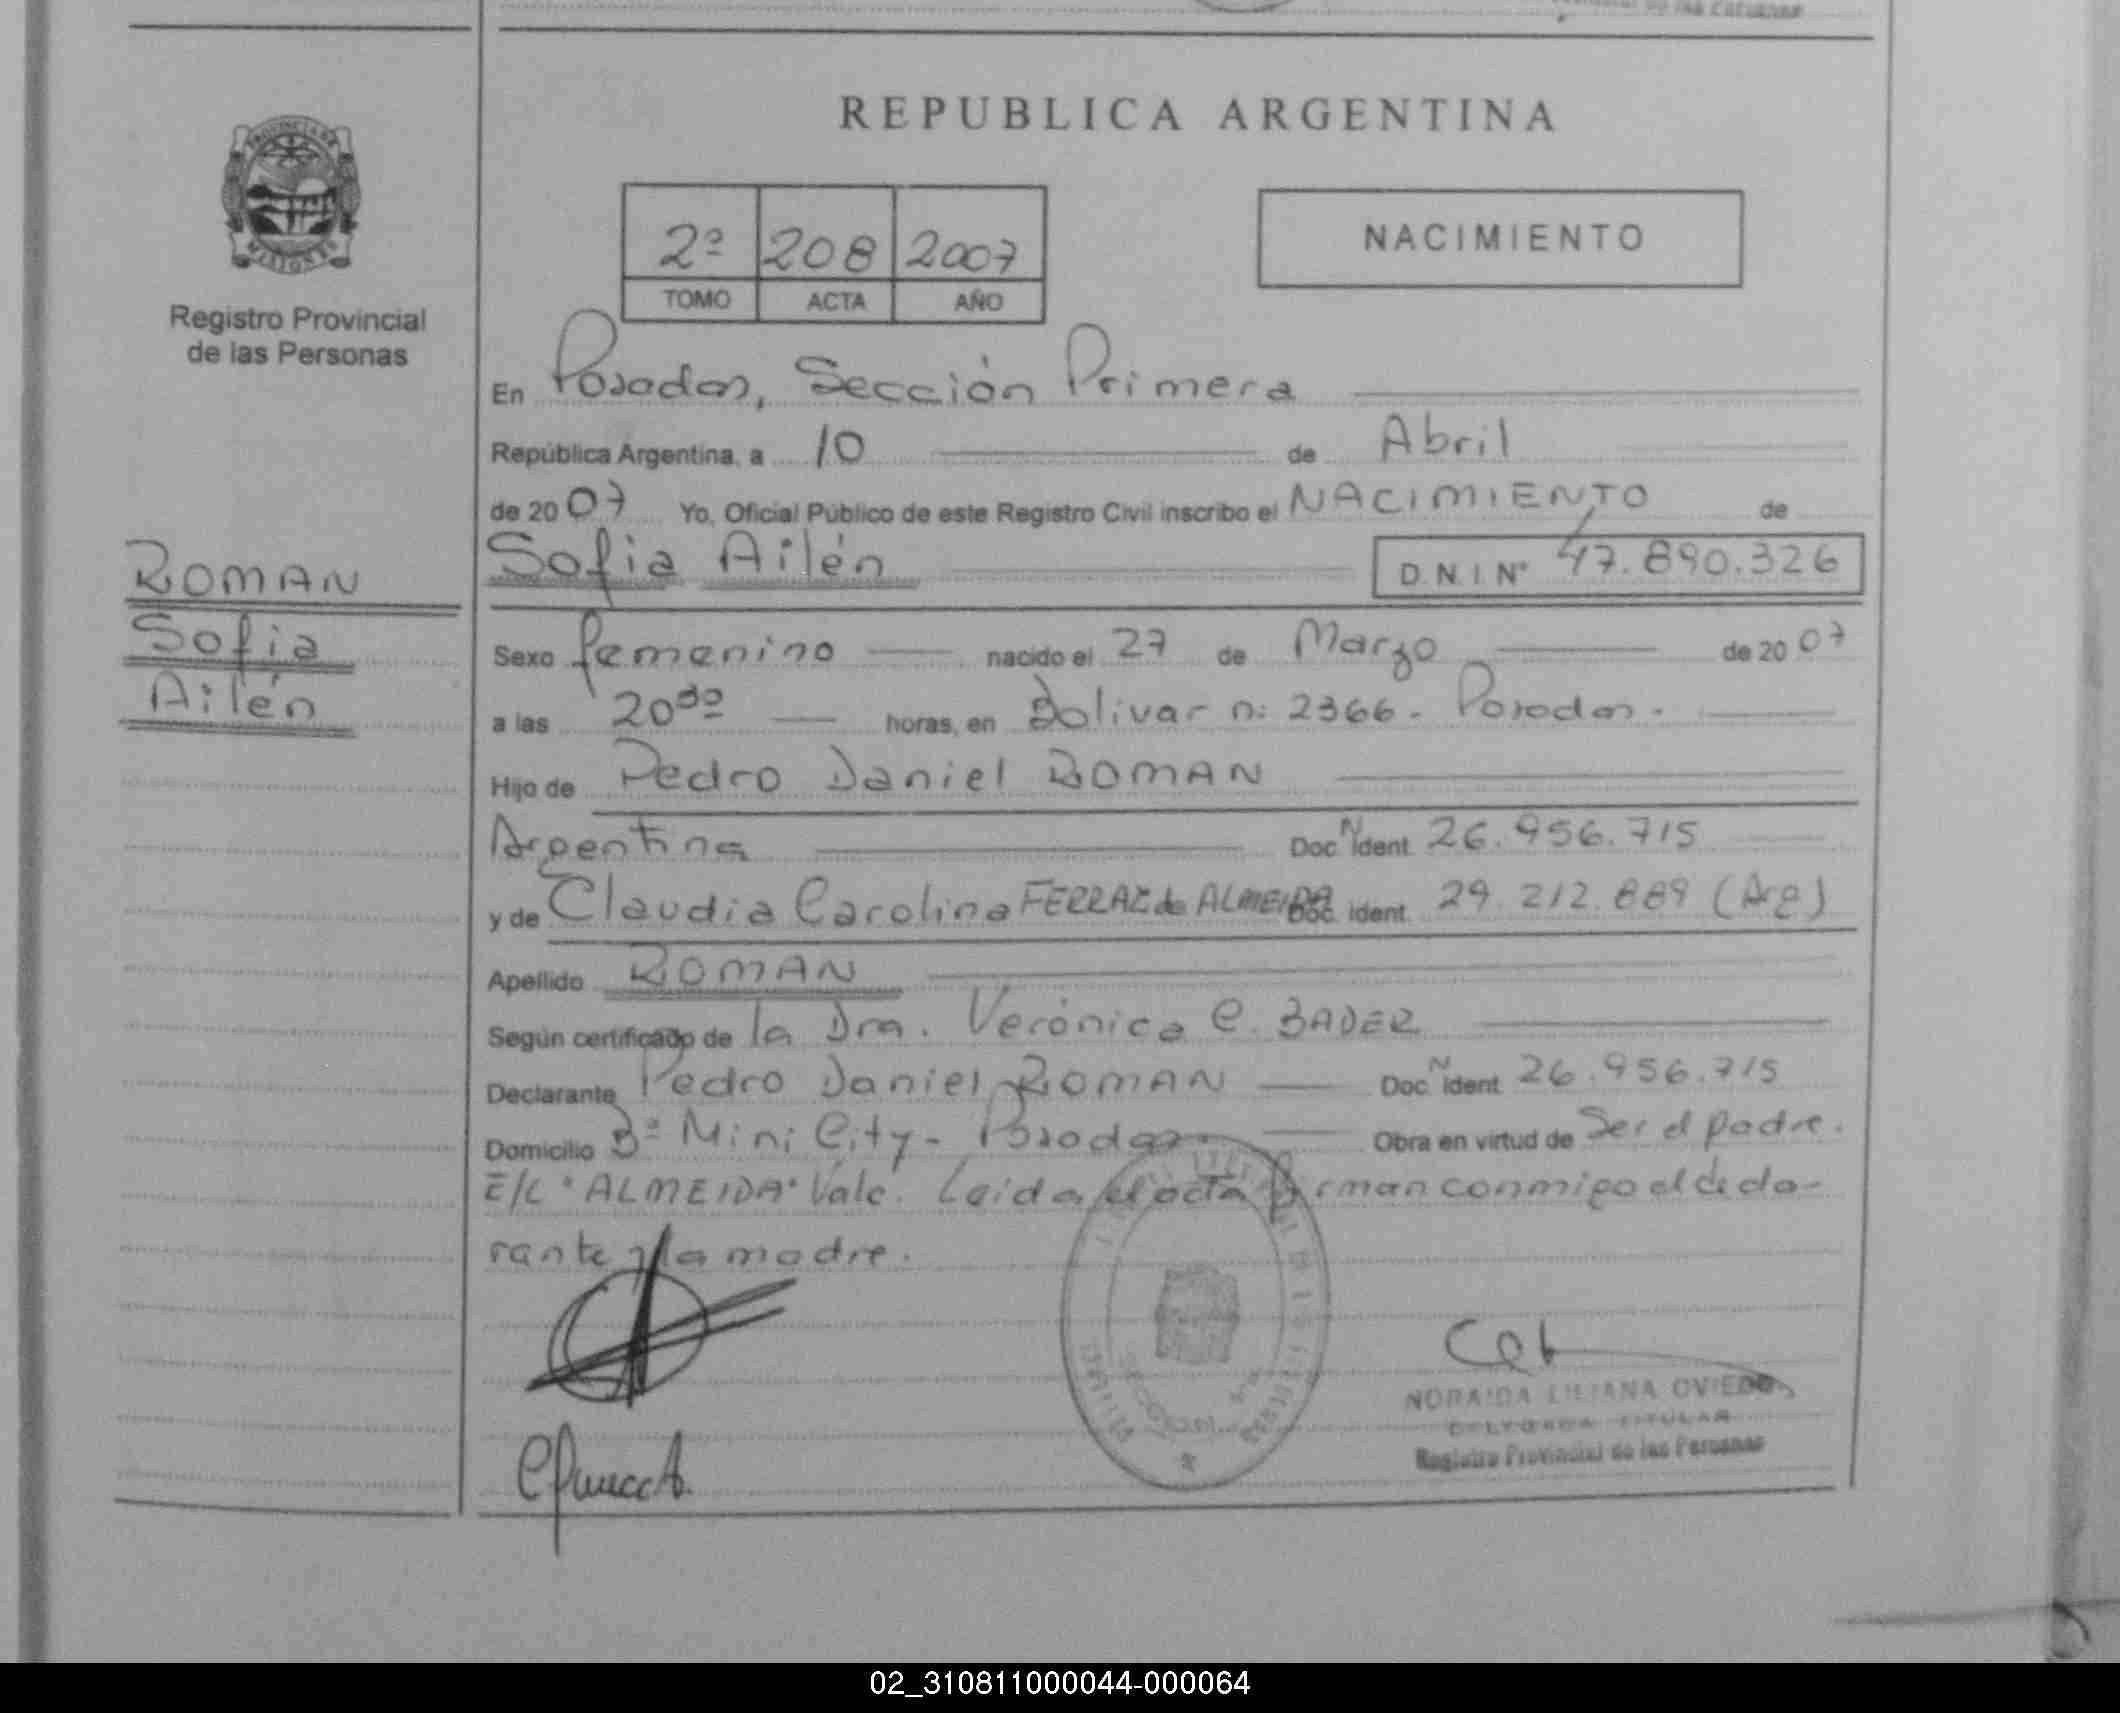 REPUBLICA ARGENTINA
PROVINCIA DE
MISIONES
Registro Provincial
de las Personas
2º 208 2007
TOMO ACTA AÑO
NACIMIENTO
En Posadas, Sección Primera
República Argentina, a 10 de Abril
de 2007 Yo, Oficial Público de este Registro Civil inscribo el NACIMIENTO de
Sofia Ailén D.N.I Nº 47.890.326
ROMAN
Sofia
Ailén
Sexo femenino nacido el 27 de Marzo de 2007
a las 20³⁰ horas, en Bolivar n: 2366 - Posadas.
Hijo de Pedro Daniel ROMAN
Argentina Doc N Ident 26.956.715
y de Claudia Carolina FERRAZ de ALMEIDA Doc. Ident. 29.212.889 (Arg)
Apellido ROMAN
Según certificado de la Dra. Verónica C. BADER
Declarante Pedro Daniel ROMAN Doc N Ident 26.956.715
Domicilio Bº Mini City - Posadas. Obra en virtud de Ser el padre.
E/L "ALMEIDA" Vale. Leida el acta firman conmigo el decla-
rante y la madre.
NORAIDA LILIANA OVIEDO
DELEGADA TITULAR
Registro Provincial de las Personas
02_310811000044-000064